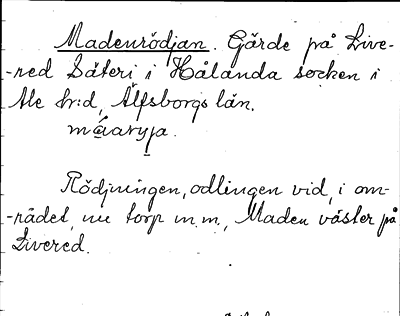 Madenrödjan. Gärde på Live-
-red Säteri i Hålanda socken i
Ale hr:d, Älfsborgs län.
Rödjningen, odlingen vid, i om-
-rådet, nu torp m.m., Maden väster på
Livered.